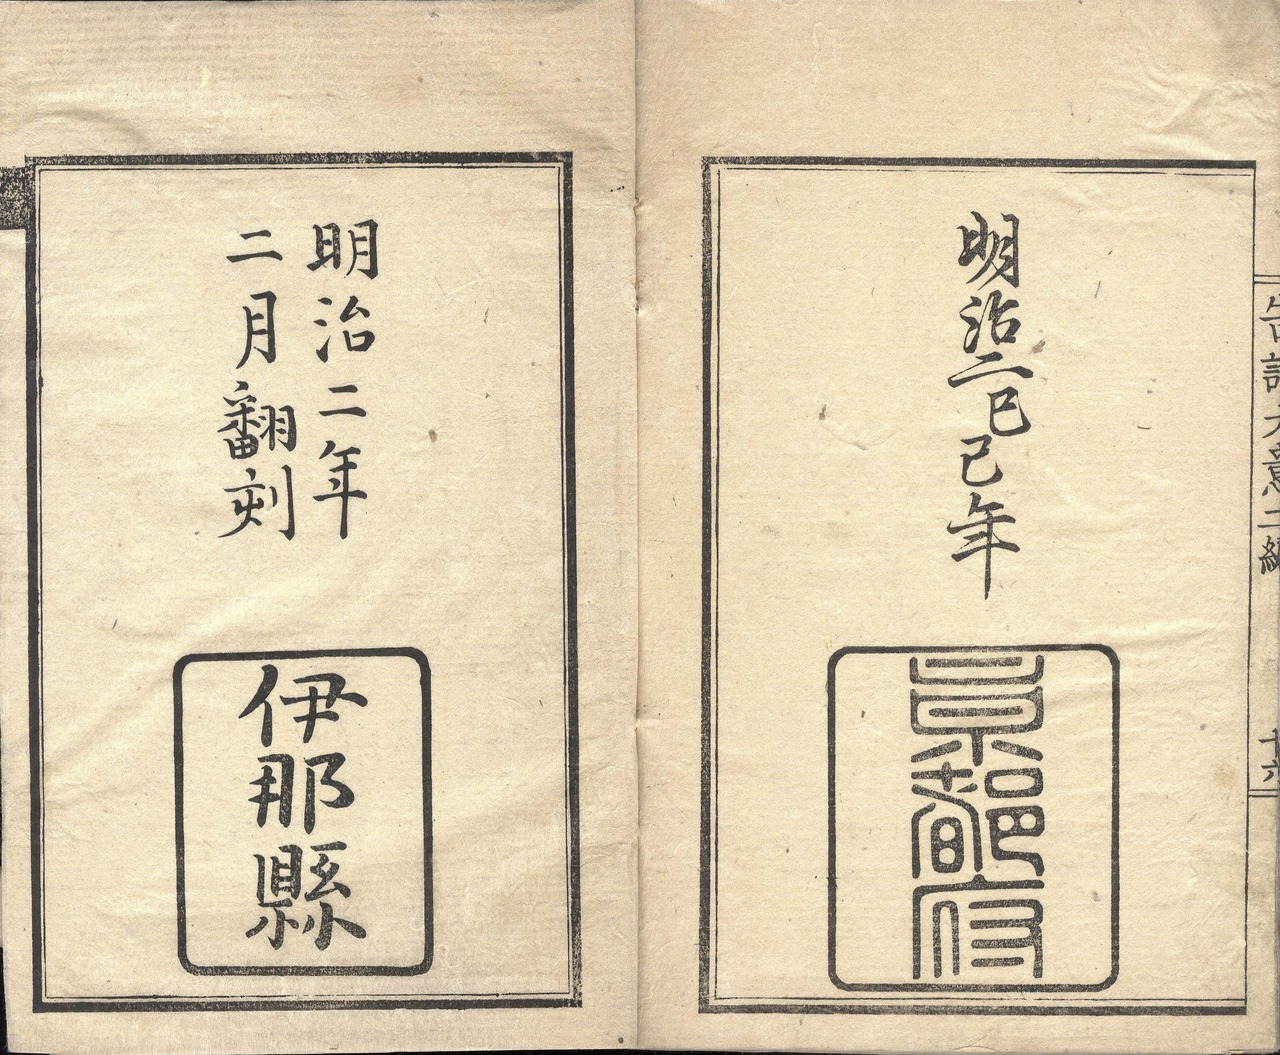 告諭大意二編
十六
明治二己巳年
京都府
明治二年
二月翻刻
伊那縣